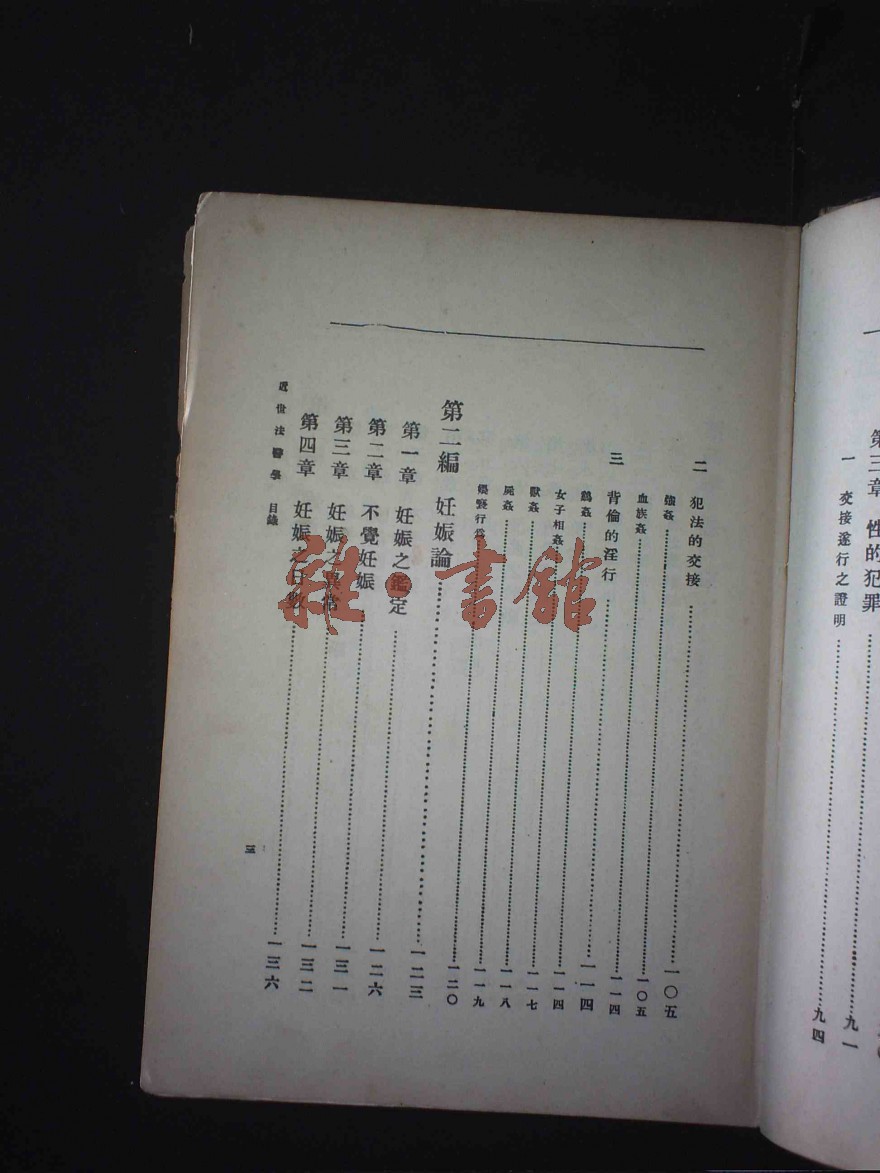 第三章 性的犯罪……九一
一 交接遂行之證明……九四
二 犯法的交接……一〇五
強姦……一〇五
血族姦……一一四
三 背倫的淫行……一一四
鷄姦……一一四
女子相姦……一一七
獸姦……一一八
屍姦……一一九
猥褻行爲……一二〇
第二編 妊娠論……一二三
第一章 妊娠之鑑定……一二六
第二章 不覺妊娠……一三一
第三章 妊娠之異常……一三二
第四章 妊娠之日數……一三六
近世法醫學 目錄
三
雜·書館